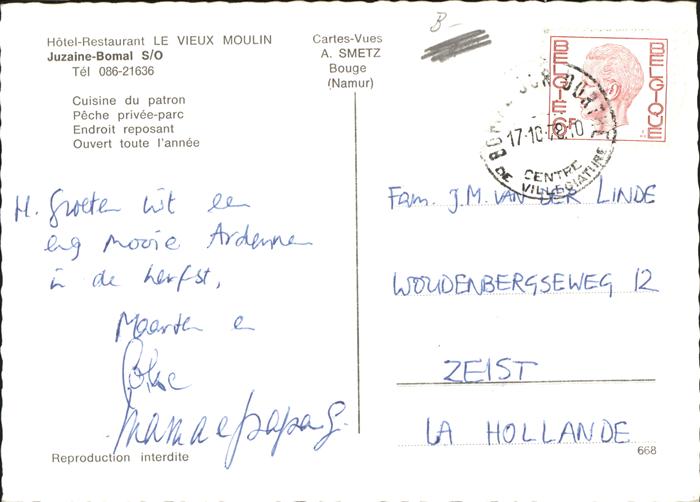 Hôtel-Restaurant LE VIEUX MOULIN
Juzaine-Bomal S/O
Tél 086-21636
Cuisine du patron
Pêche privée-parc
Endroit reposant
Ouvert toute l'année
Cartes-Vues
A. SMETZ
Bouge
(Namur)
B-
BELGIE
BELGIQUE
6F
BOMAL SUR OURTHE
17-10-78
CENTRE
DE VILLEGIATURE
H. Groeten uit een
erg mooie Ardennen
in de herfst,
Maarten en
Mama e papa G.
Fam. J.M. VAN DER LINDE
WOUDENBERGSEWEG 12
ZEIST
LA HOLLANDE
Reproduction interdite
668